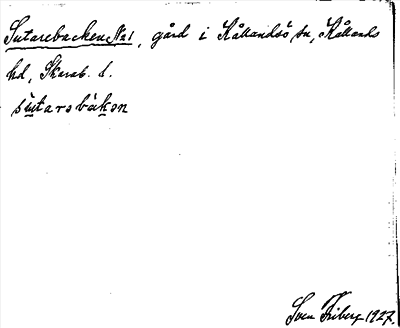 Sutarebacken No 1, gård i Kållandsö sn, Kållands
hd, Skarab. l.
sutarsbakən
Sven Friberg 1927.